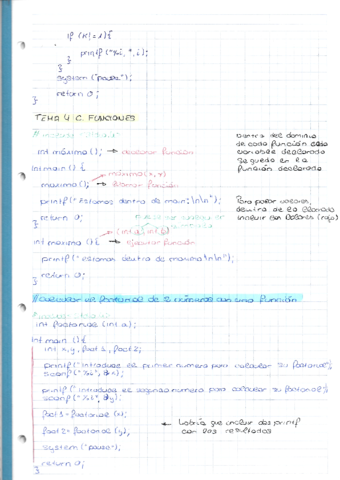 if (k!=1){
printf("%i, ", i);
}
}
system ("pause");
return 0;
}
TEMA 4 C. FUNCIONES
Dentro del dominio
de cada función cada
variable declarada
se queda en la
función declarada
int máximo (); → declarar función
int main () {
máximo (x, y)
maximo (); → llamar función
printf ("Estamos dentro de main:\n\n");
Para pasar valores
dentro de la llamada
incluir con valores (rojo)
return 0;
}
(int a, int b)
int maximo () { → ejecutar función
printf ("estamos dentro de maximo\n\n");
return 0;
}
//calcular el factorial de 2 números con una función
int factorial (int a);
int main () {
int x, y, fact 1, fact 2;
printf ("introduce el primer numero para calcular su factorial");
scanf ("%i", &x);
printf ("introduce el segundo numero para calcular su factorial");
scanf ("%i", &y);
fact 1 = factorial (x);
fact 2 = factorial (y);
← habría que incluir dos printf
con los resultados
system ("pause");
return 0;
}